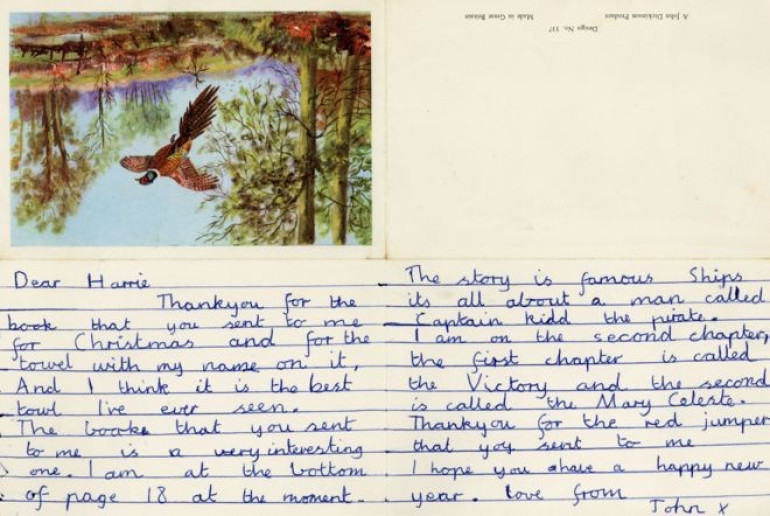 A John Dickinson Product
Made in Great Britain
Design No. 117
Dear Harrie
Thankyou for the
book that you sent to me
for Christmas and for the
towel with my name on it,
And I think it is the best
towl I've ever seen.
The booke that you sent
to me is a very interesting
one. I am at the bottom
of page 18 at the moment.
The story is famous Ships
its all about a man called
Captain Kidd the pirate.
I am on the second chapter,
the first chapter is called
the Victory and the second
is called the Mary Celeste.
Thankyou for the red jumper
that you sent to me
I hope you ahave a happy new
year. love from
John x